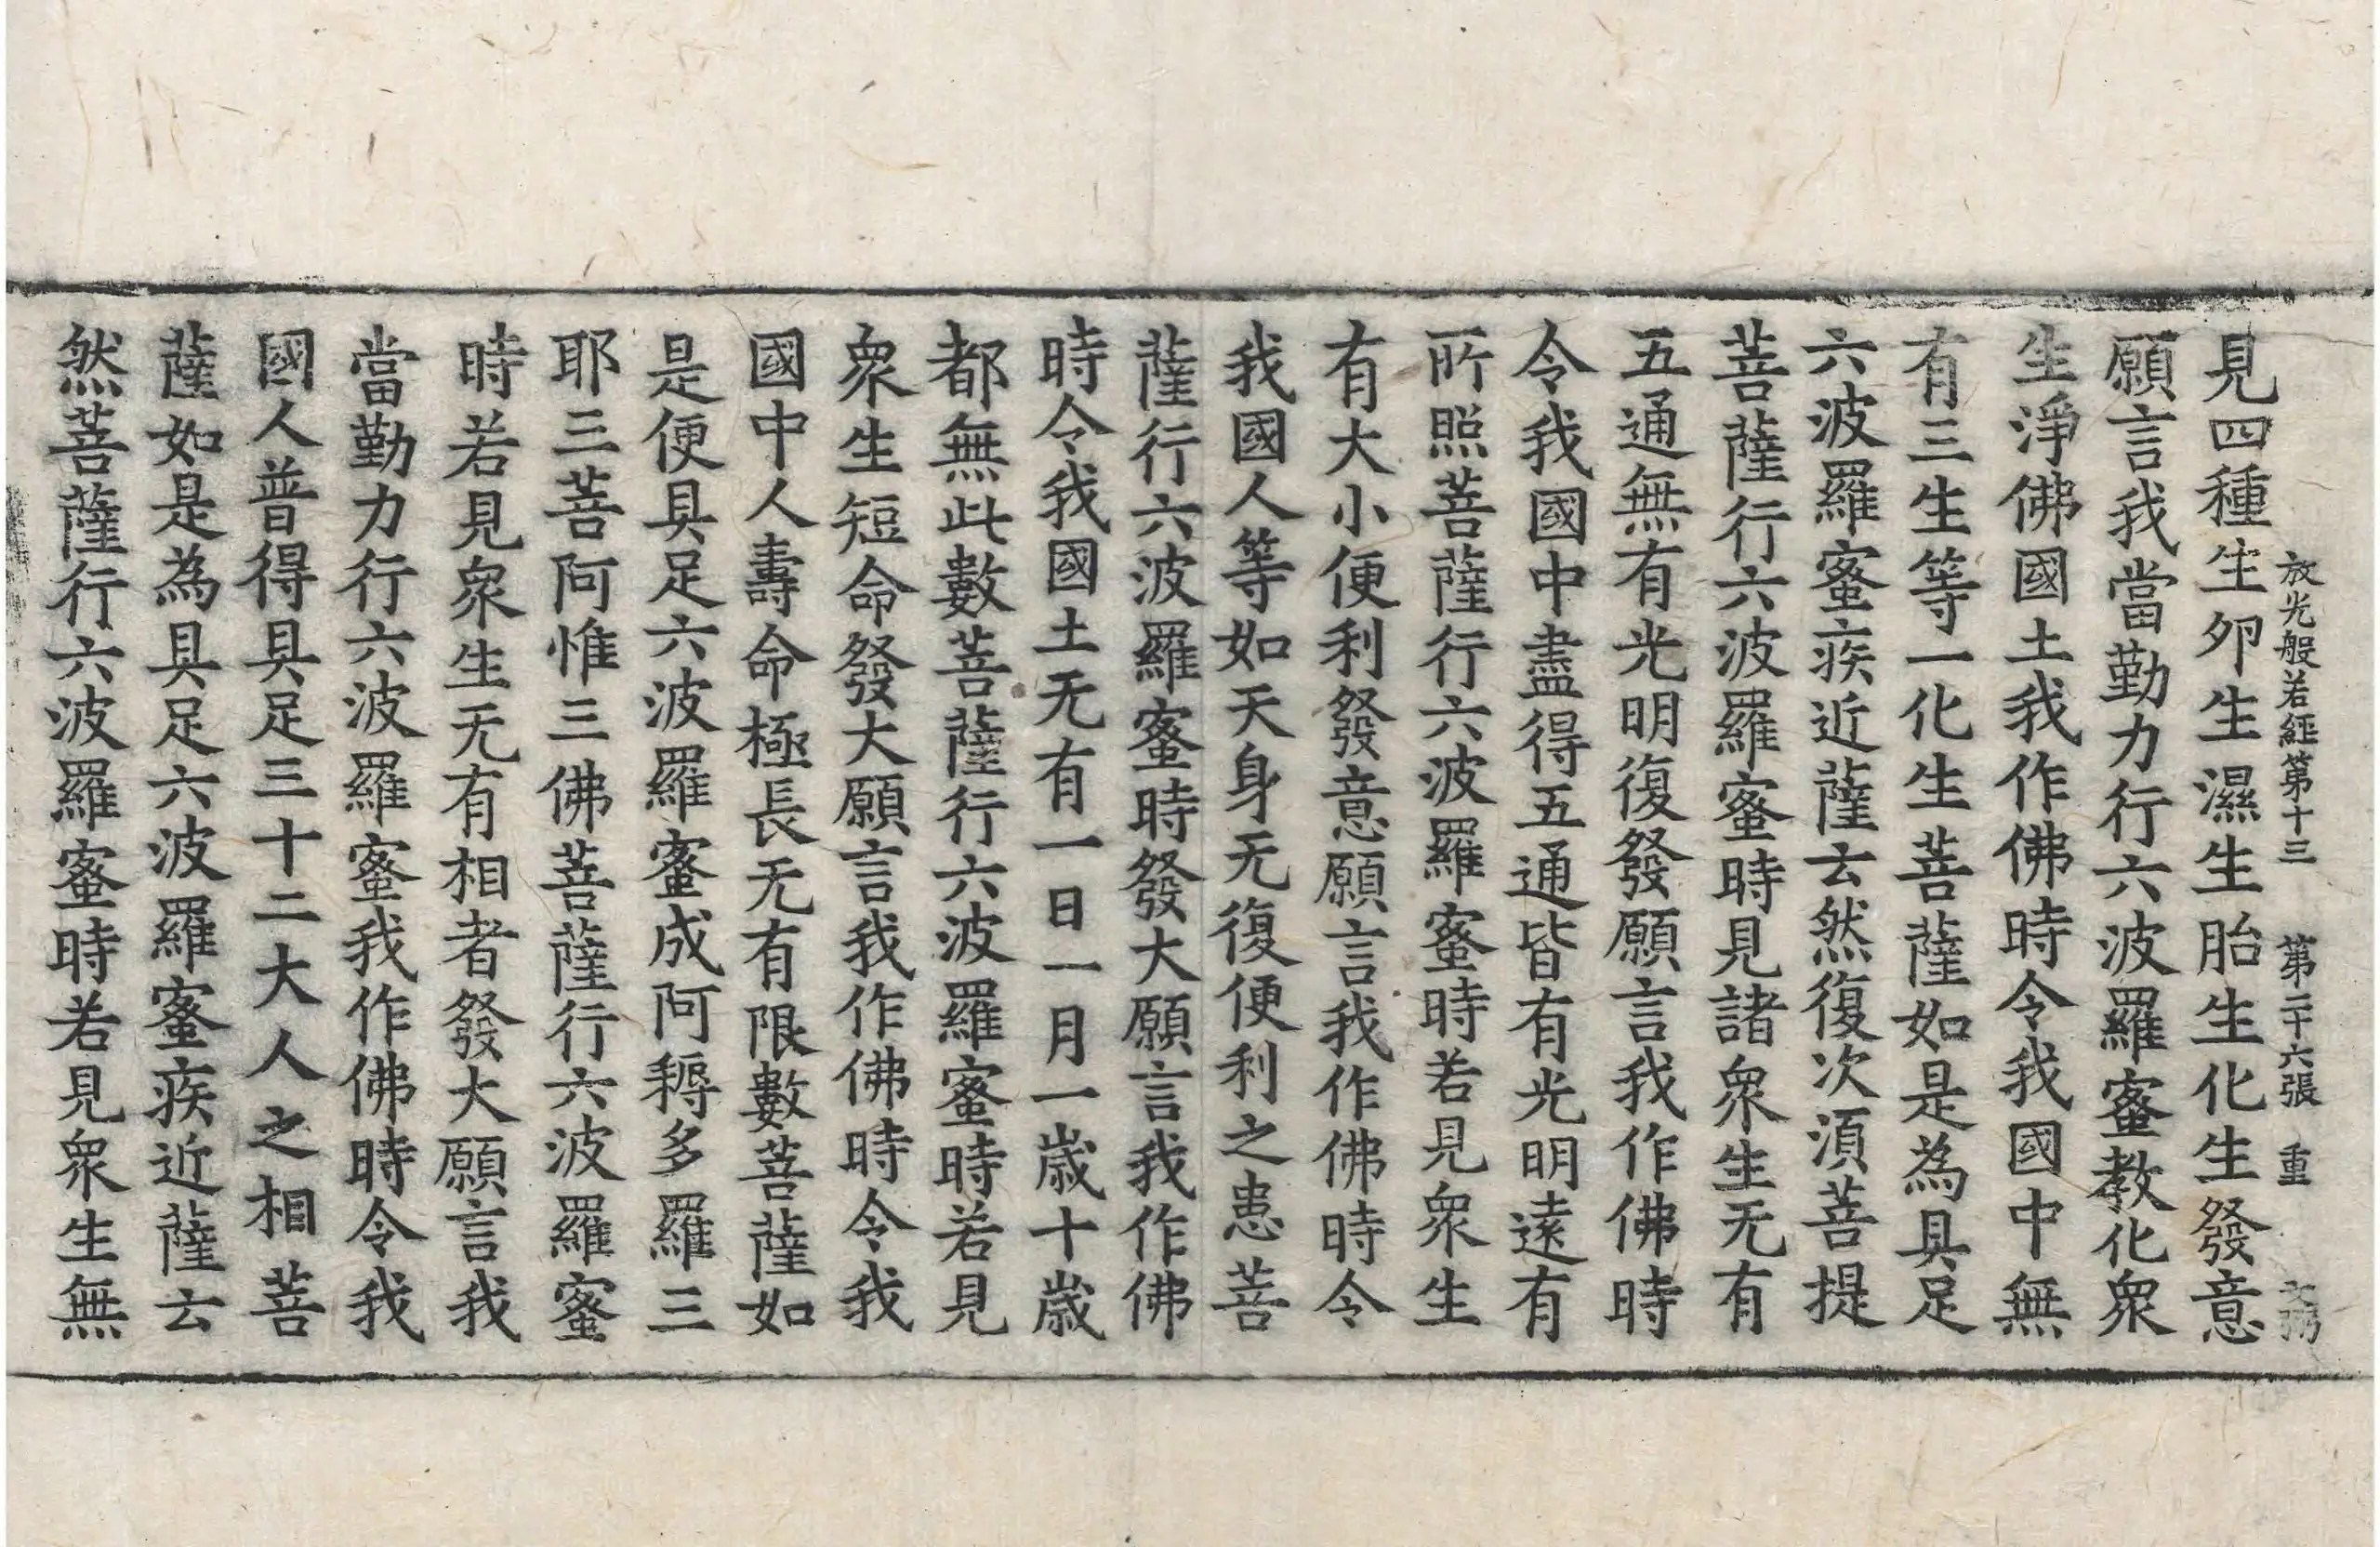 放光般若經第十三 第二十六張 重
見四種生卵生濕生胎生化生發意
願言我當勤力行六波羅蜜教化衆
生淨佛國土我作佛時令我國中無
有三生等一化生菩薩如是為具足
六波羅蜜疾近薩云然復次湏菩提
菩薩行六波羅蜜時見諸衆生无有
五通無有光明復發願言我作佛時
令我國中盡得五通皆有光明遠有
所照菩薩行六波羅蜜時若見衆生
有大小便利發意願言我作佛時令
我國人等如天身无復便利之患菩
薩行六波羅蜜時發大願言我作佛
時令我國土无有一日一月一歳十歳
都無此數菩薩行六波羅蜜時若見
衆生短命發大願言我作佛時令我
國中人壽命極長无有限數菩薩如
是便具足六波羅蜜成阿耨多羅三
耶三菩阿惟三佛菩薩行六波羅蜜
時若見衆生无有相者發大願言我
當勤力行六波羅蜜我作佛時令我
國人普得具足三十二大人之相菩
薩如是為具足六波羅蜜疾近薩云
然菩薩行六波羅蜜時若見衆生無